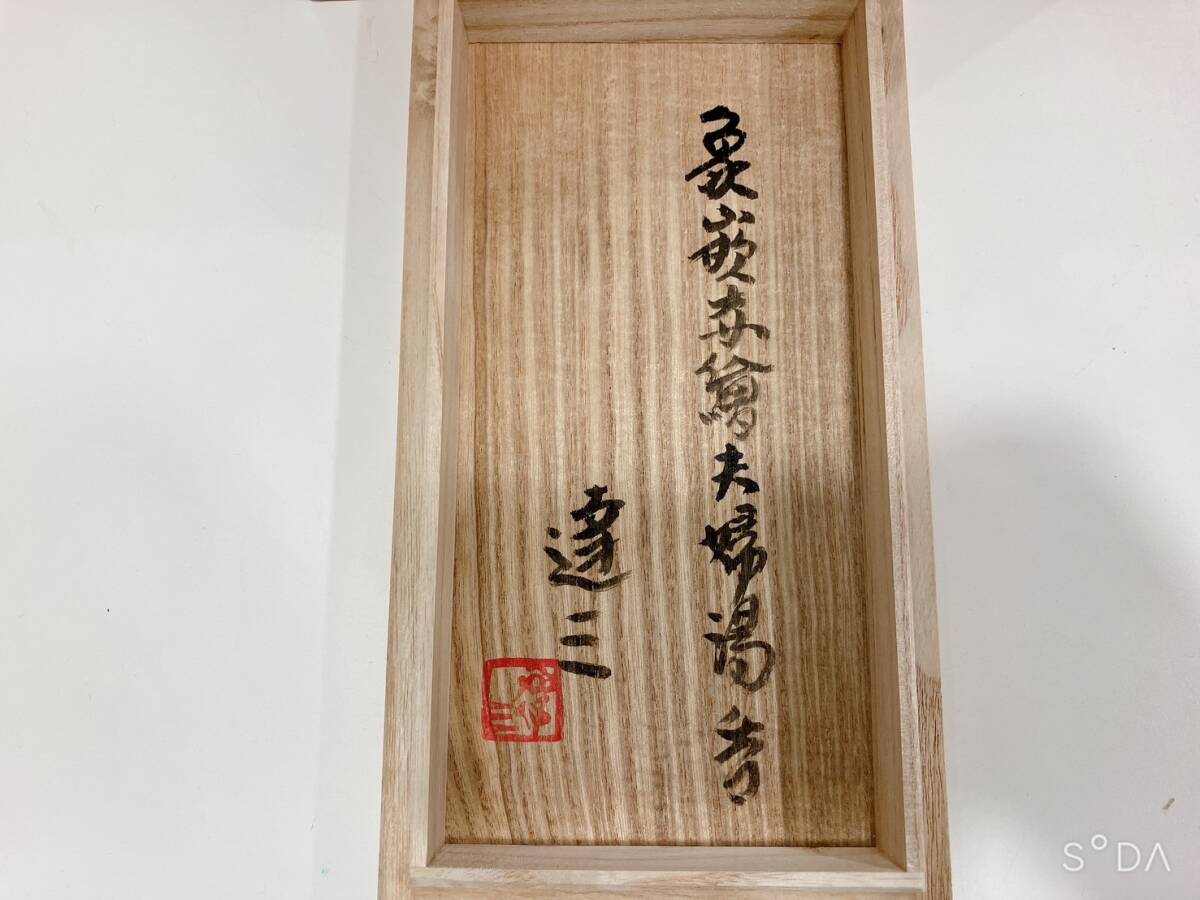 象嵌赤繪夫婦湯呑
達三
SODA